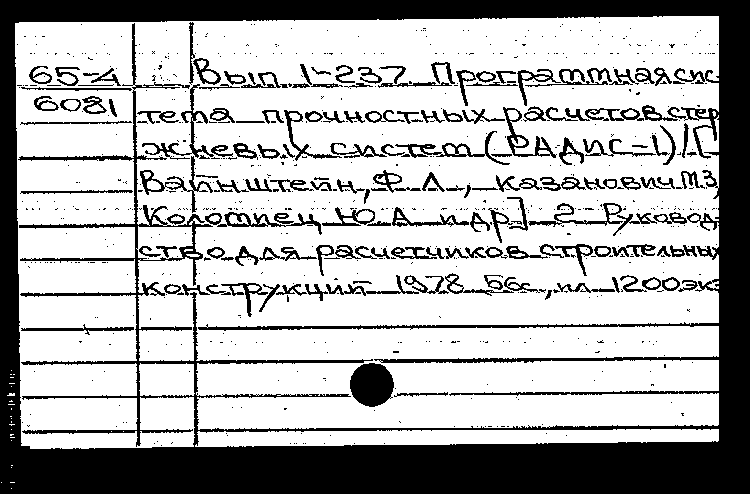 65-4 Вып 1-237. Программная сис-
6081 тема прочностных расчетов стер
жневых систем (РАДИС-1)/[
Вайнштейн, Ф Л., Казанович М З,
Коломиец Ю.А и др] 2 Руковод-
ство для расчетчиков строительных
конструкций 1978 56с, ил 1200экз